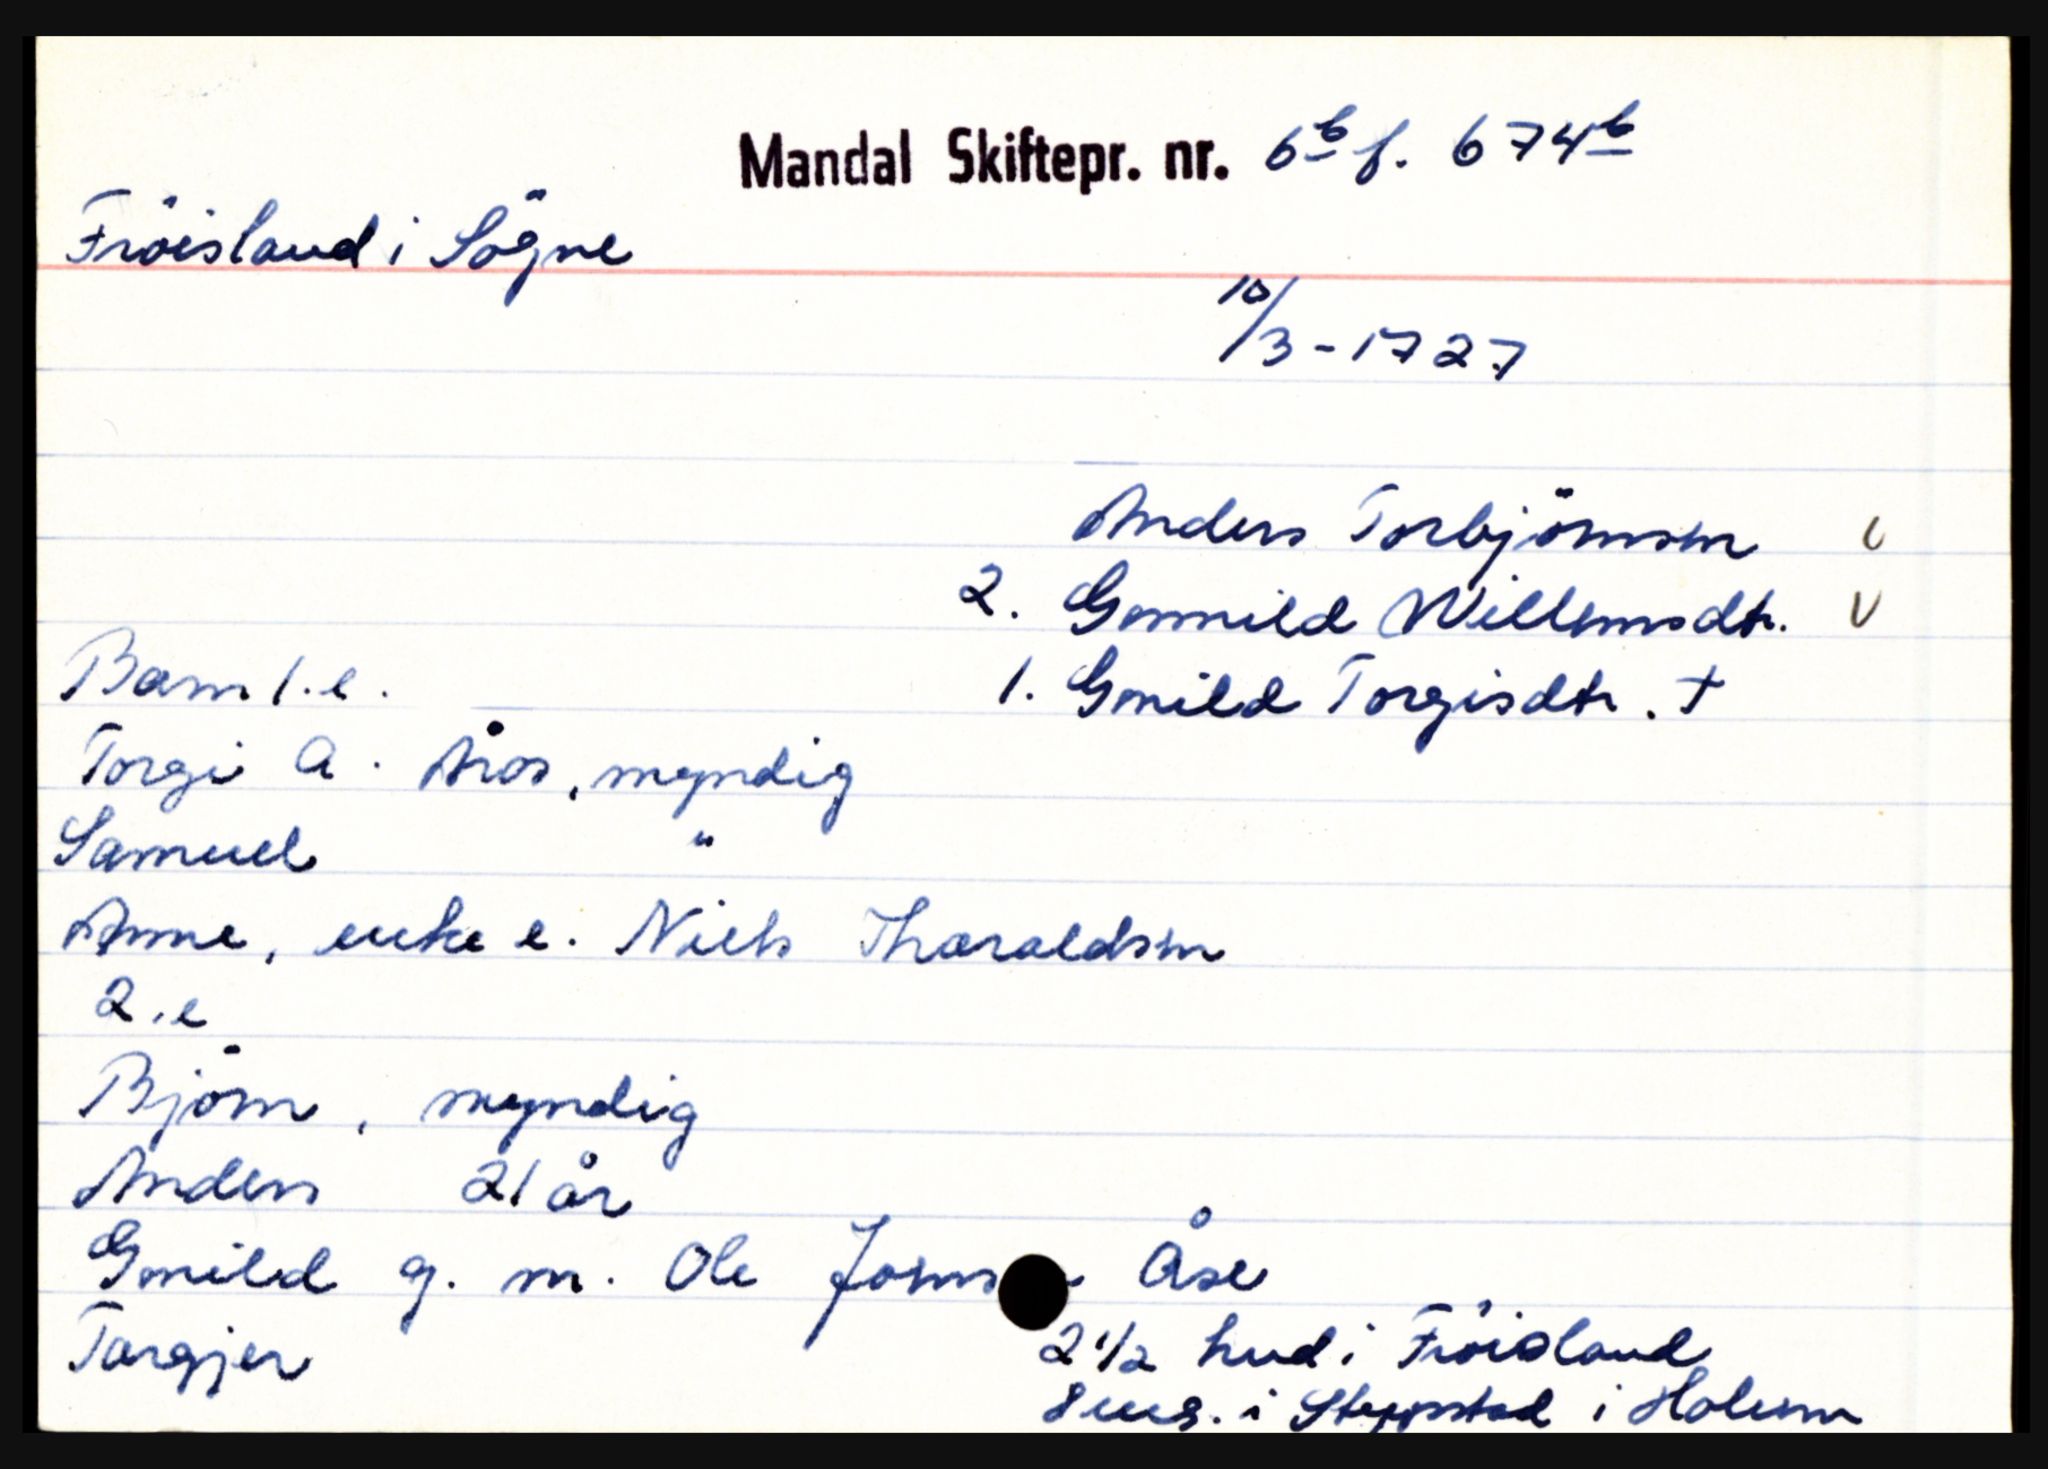 Mandal Skiftepr. nr. 6b f. 674b
Fröisland i Sögne
10/3-1727
Anders Torbjörnsen
2. Gunnild Willumsdtr.
Barn 1.e.
1. Gunild Torgisdtr. †
Torgi A. Åros, myndig
Samuel "
Anne, enke e. Niels Tharaldsen
2.e
Björn, myndig
Anders 21 år
Gunild g. m. Ole Åse
Targjer
2 1/2 hud i Fröisland
i i Holum